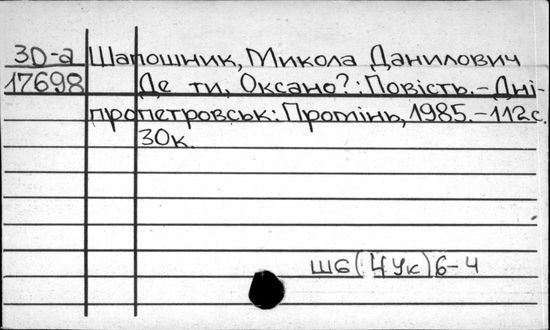 30-а Шапошник, Микола Данилович
17698 Де ти, Оксано?: Повість.-Дні-
пропетровськ: Промінь, 1985.-112с.
30к.
Ш6(4Ук)6-4